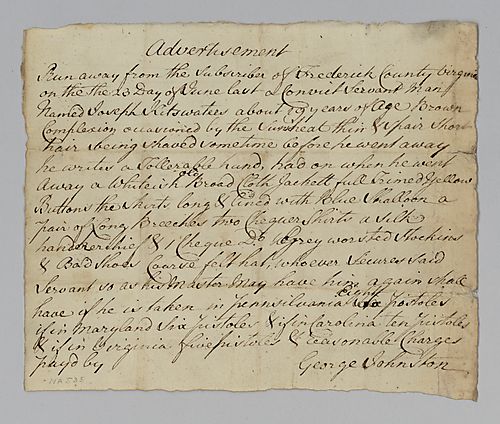 Advertisement
Run away from the Subscriber of Frederick County Virginia
on the the 23 Day of June last a Convict Servant Man
Named Joseph about years of Age Brown
Complexion ocasioned by the Sunheat thin & Spair Short
hair being shaved sometime before he went away
he writes a Tollerable hand, had on when he went
away a Whiteish old Broad Cloth Jackett full Trimed yellow
Buttons the Skirts long & Lined with Blue Shalloon a
pair of Long Breeches two Cheque Shirts a Silk
handkerchief & 1 Cheque Do Grey worsted Stockins
& Bad Shoes Coarse felt hat, whoever Secures said
Servant so as his Master May have him again shall
have if he is taken in Pennsilvania Pistoles
if in Maryland Six pistoles & if in Carolina ten pistoles
& if in Virginia five pistoles & reasonable Charges
payd by
George Johnston